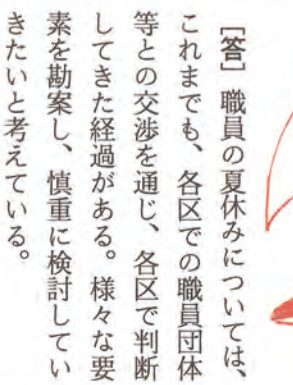 ［答］ 職員の夏休みについては、
これまでも、各区での職員団体
等との交渉を通じ、各区で判断
してきた経過がある。様々な要
素を勘案し、慎重に検討してい
きたいと考えている。